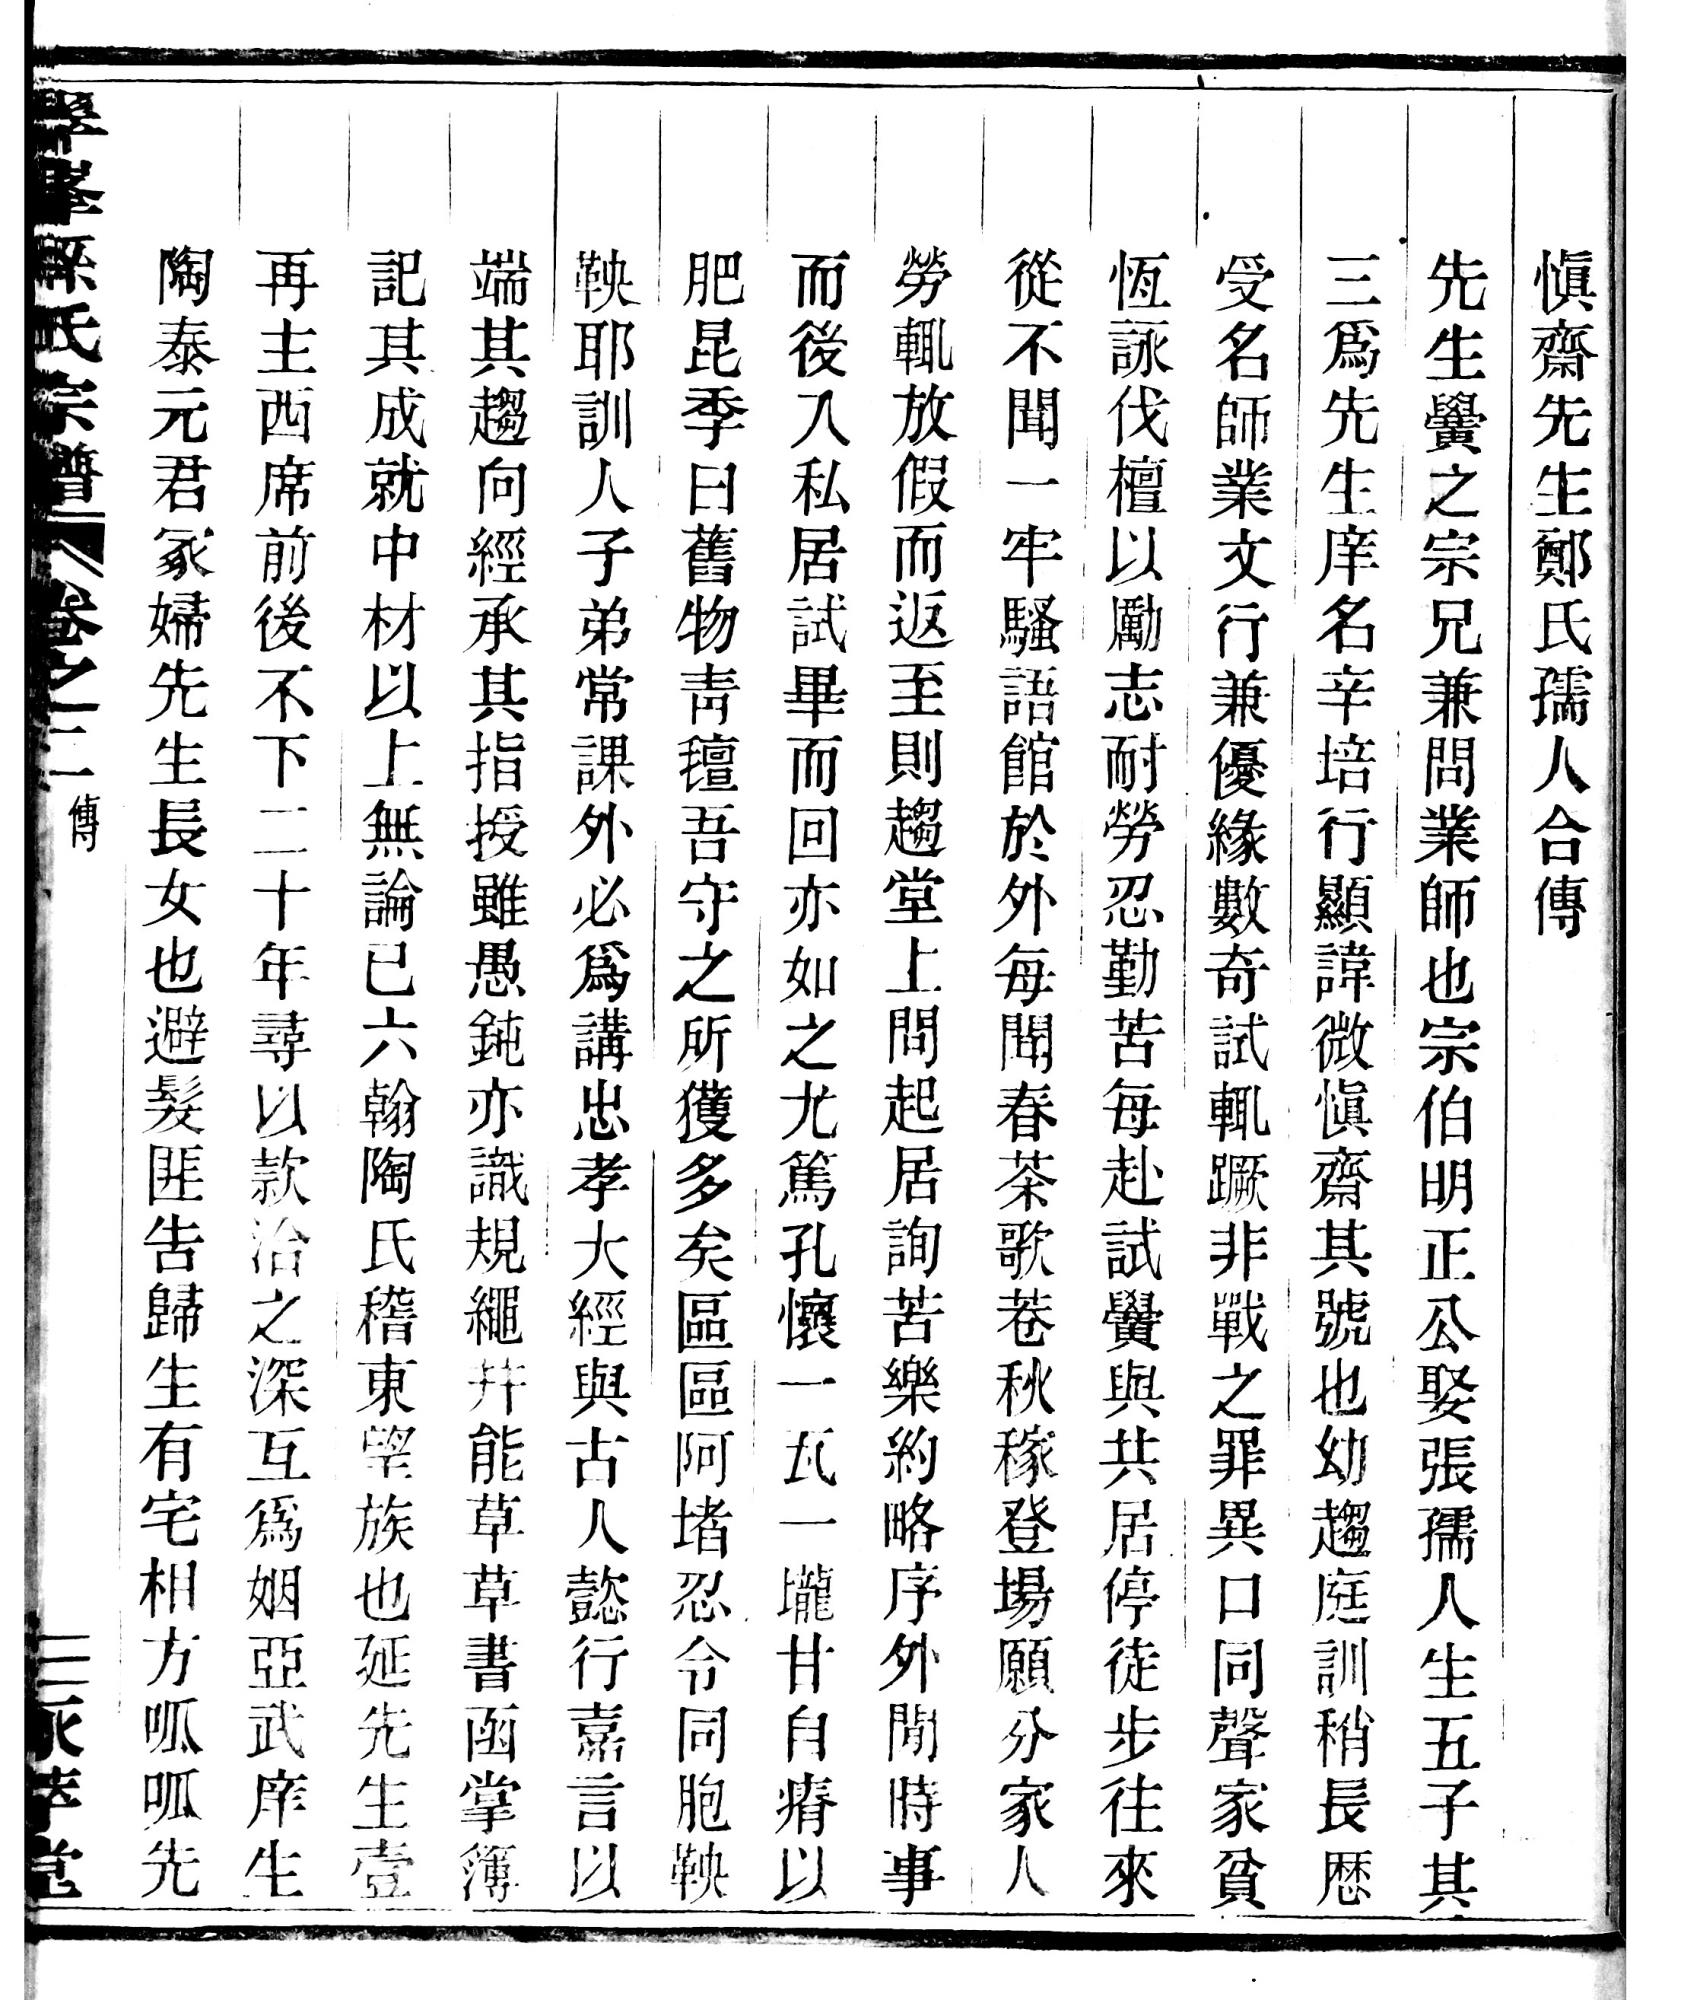 愼齋先生鄭氏孺人合傳
先生黌之宗兄兼問業師也宗伯明正公娶張孺人生五子其
三爲先生庠名辛培行顯諱微愼齋其號也幼趨庭訓稍長歷
受名師業文行兼優緣數奇試輒蹶非戰之罪異口同聲家貧
恆詠伐檀以勵志耐勞忍勤苦每赴試黌與共居停徒步往來
從不聞一牢騷語館於外每聞春茶歌巷秋稼登場願分家人
勞輒放假而返至則趨堂上問起居詢苦樂約略序外閒時事
而後入私居試畢而回亦如之尤篤孔懷一瓦一壠甘自瘠以
肥昆季曰舊物靑氊吾守之所獲多矣區區阿堵忍令同胞鞅
鞅耶訓人子弟常課外必爲講忠孝大經與古人懿行嘉言以
端其趨向經承其指授雖愚鈍亦識規繩并能草草書函掌簿
記其成就中材以上無論已六翰陶氏稽東望族也延先生壹
再主西席前後不下二十年尋以款洽之深互爲姻亞武庠生
陶泰元君冢婦先生長女也避髮匪吿歸生有宅相方呱呱先
孫氏宗譜 卷之二 傳
三 永萃堂